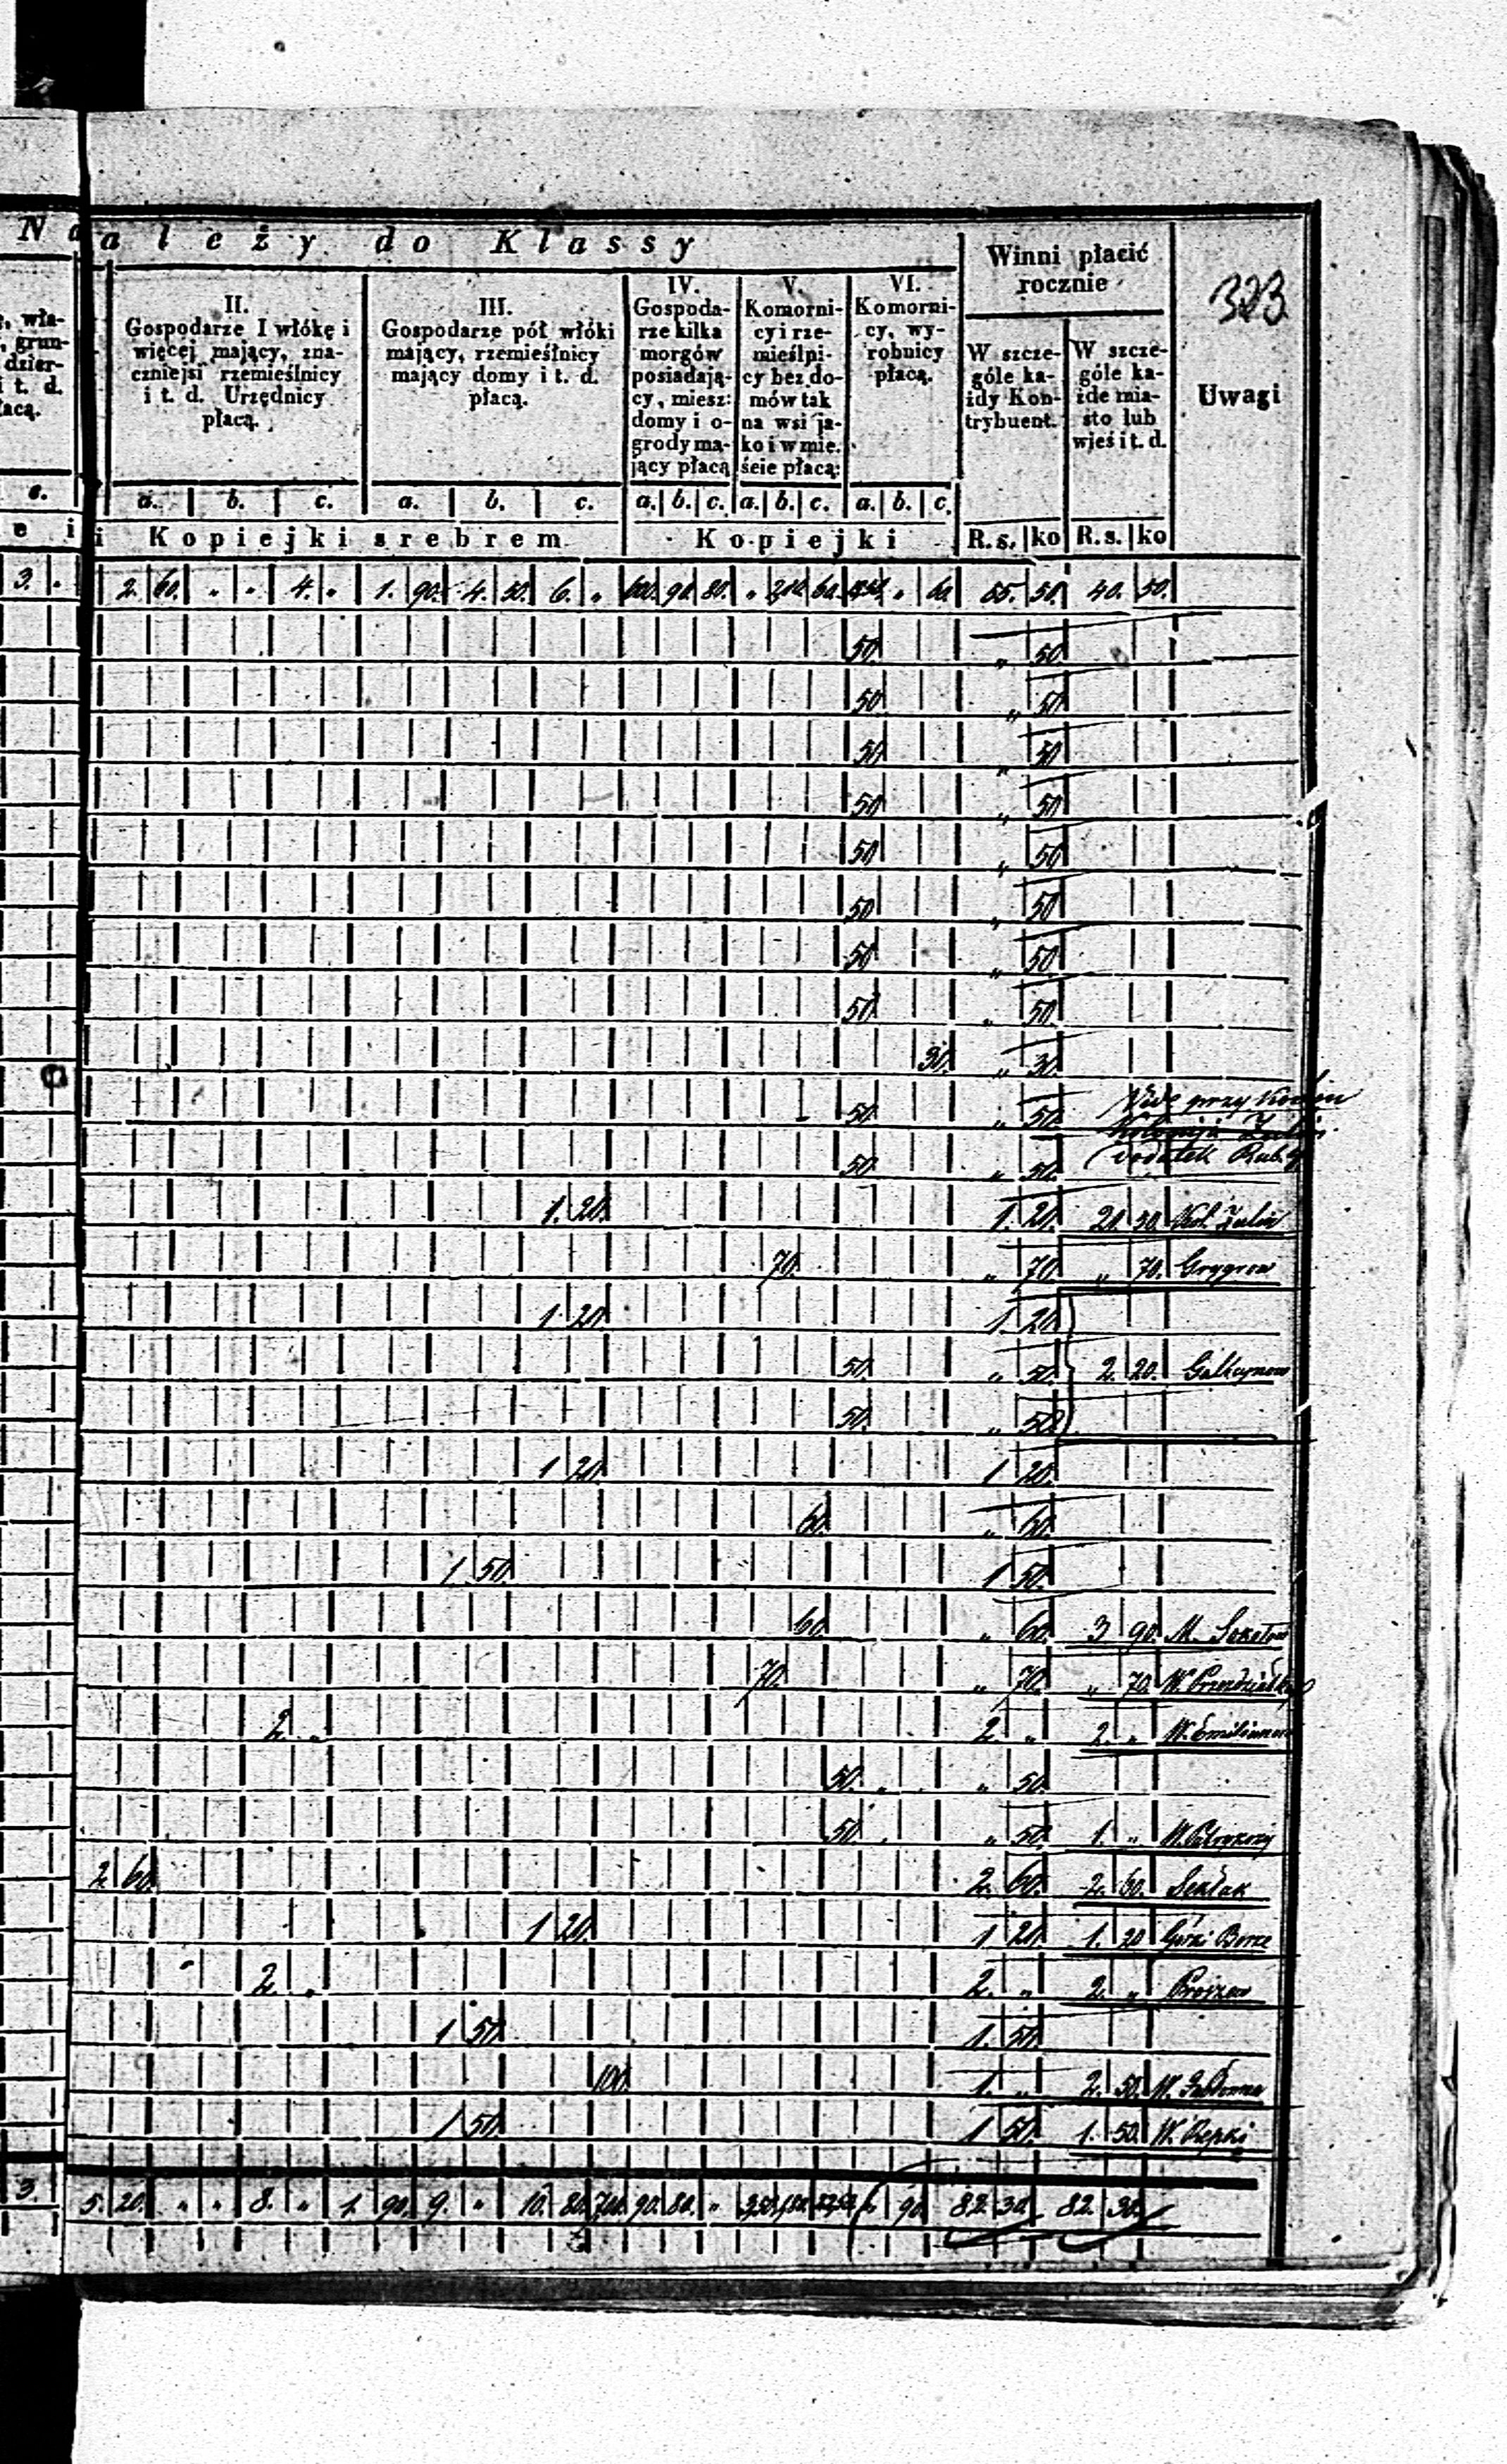 N a a l e ż y d o K l a s s y
Winni płacić rocznie
323
Uwagi
II.
Gospodarze I włókę i
więcej mający, zna-
czniejsi rzemieślnicy
i t. d. Urzędnicy
płacą.
III.
Gospodarze pół włóki
mający, rzemieślnicy
mający domy i t. d.
płacą.
IV.
Gospoda-
rze kilka
morgów
posiadają-
cy, miesz:
domy i o-
grody ma-
jący płacą
V.
Komorni-
cy i rze-
mieślni-
cy bez do-
mów tak
na wsi ja-
ko i w mie.
ście płacą:
VI.
Komorni-
cy, wy-
robnicy
płacą.
W szcze-
góle ka-
żdy Kon-
trybuent.
W szcze-
góle ka-
żde mia-
sto lub
wieś i t. d.
, wła-
, grun-
dzier-
i t. d.
łacą.
c. a. b. c. a. b. c. a. b. c. a. b. c. a. b. c.
e i i K o p i e j k i s r e b r e m K o p i e j k i R. s. ko R. s. ko
3. . 2. 60. " " 4. " 1. 90. 4. 50. 6. " 600. 90. 80. " 210. 60. " 60. 55. 50. 40. 50.
50. " 50.
50. " 50
50. " 50
50 " 50
50 " 50
50 " 50
50 " 50
50. " 50.
30. " 30.
50. " 50. Vide przy
50. " 50. dodatek Rub.
1. 20. 1. 20. 20. 30. Kol. Julin
70. " 70. " 70. Grygrow
1. 20. 1 20.
50. " 50. 2. 20. Gałkymow
50. " 50
1 20. 1 20.
60. " 60.
1 50. 1 50.
60. " 60. 3 90. M. Sokołow
70. " 70. " 70. W.
2. " 2. " 2. " W. Emilianow
50. " " 50.
50. " 50. 1. " W.
2 60. 2. 60. 2. 60. Sekłak
1 20. 1 20. 1. 20 Górki Borze
2. " 2. " 2. " Proszew
1 50. 1. 50.
100. 1. " 2. 50. W.
1 50. 1 50. 1. 50. W. Repki
3. 5. 20. " " 8. " 1. 90. 9. " 10. 80. 700. 90. 80. " 90. 82. 30. 82. 30.